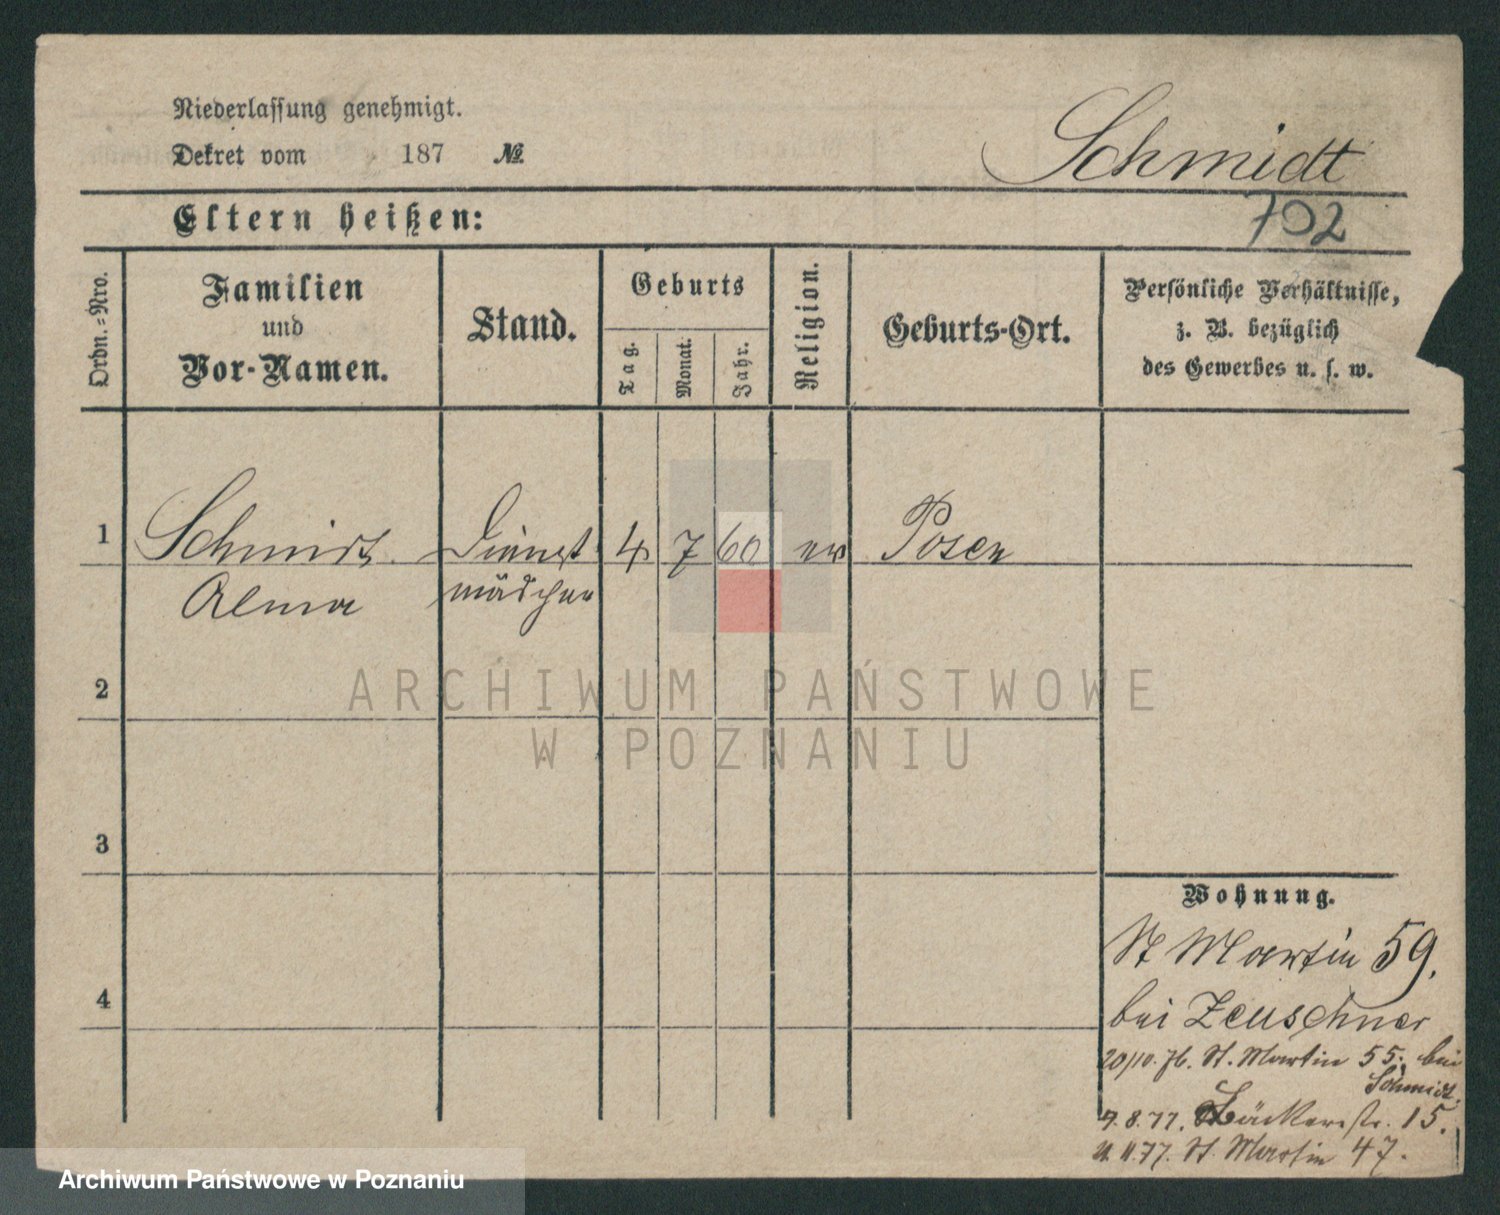 Niederlassung genehmigt.
Dekret vom 187 №
Schmidt
Eltern heißen:
702
Ordn.=Nro.
Familien
und
Vor-Namen.
Stand.
Geburts
Tag.
Monat.
Jahr.
Religion.
Geburts-Ort.
Persönliche Verhältnisse,
z. B. bezüglich
des Gewerbes u. s. w.
1 Schmidt Dienst 4 7 60 ev Posen
Alma mädchen
2
ARCHIWUM PAŃSTWOWE
W POZNANIU
3
Wohnung.
St Martin 59.
4
bei Zeuschner
20/10.76. St. Martin 55. bei
Schmidt.
9.8.77. Bäckerstr. 15.
11.77. St. Martin 47.
Archiwum Państwowe w Poznaniu